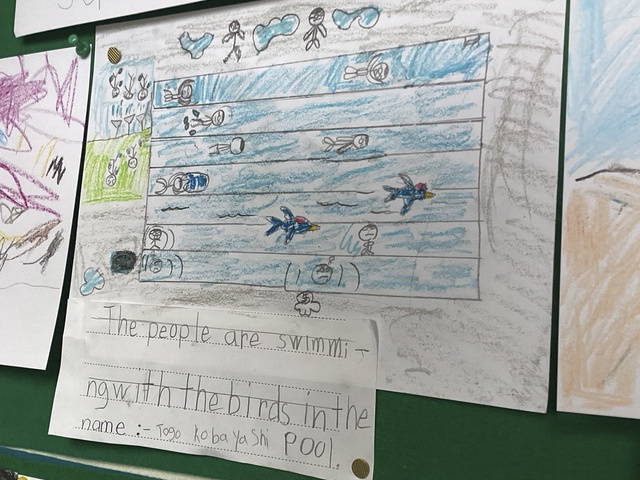 The people are swimmi-
ng with the birds in the
name :- Togo Kobayashi pool.